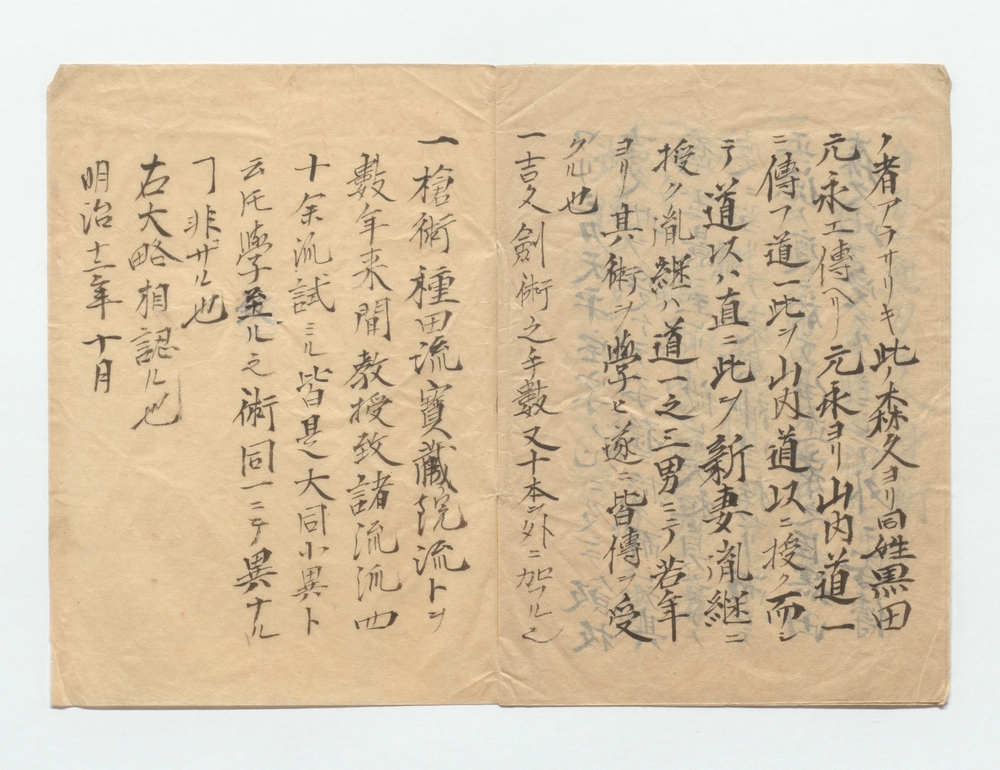 ク者アラサリキ此ノ森久ヨリ同姓黒田
元永エ傳ヘリ元永ヨリ山内道一
ニ傳フ道一此ヲ山内道以ニ授ク而シ
テ道以ハ直ニ此ヲ新妻胤継ニ
授ク胤継ハ道一之三男ニテ若年
ヨリ其術ヲ學ヒ遂ニ皆傳ヲ受
タル也
一吉久劍術之手數又十本ノ外ニ加フル之
一槍術種田流寶藏院流トヲ
數年来間教授致諸流派四
十余流試ミル皆是大同小異ト
云圧學至ル之術同一ニテ異ナル
ヿ非ザル也
右大略相認ル也
明治十二年十月